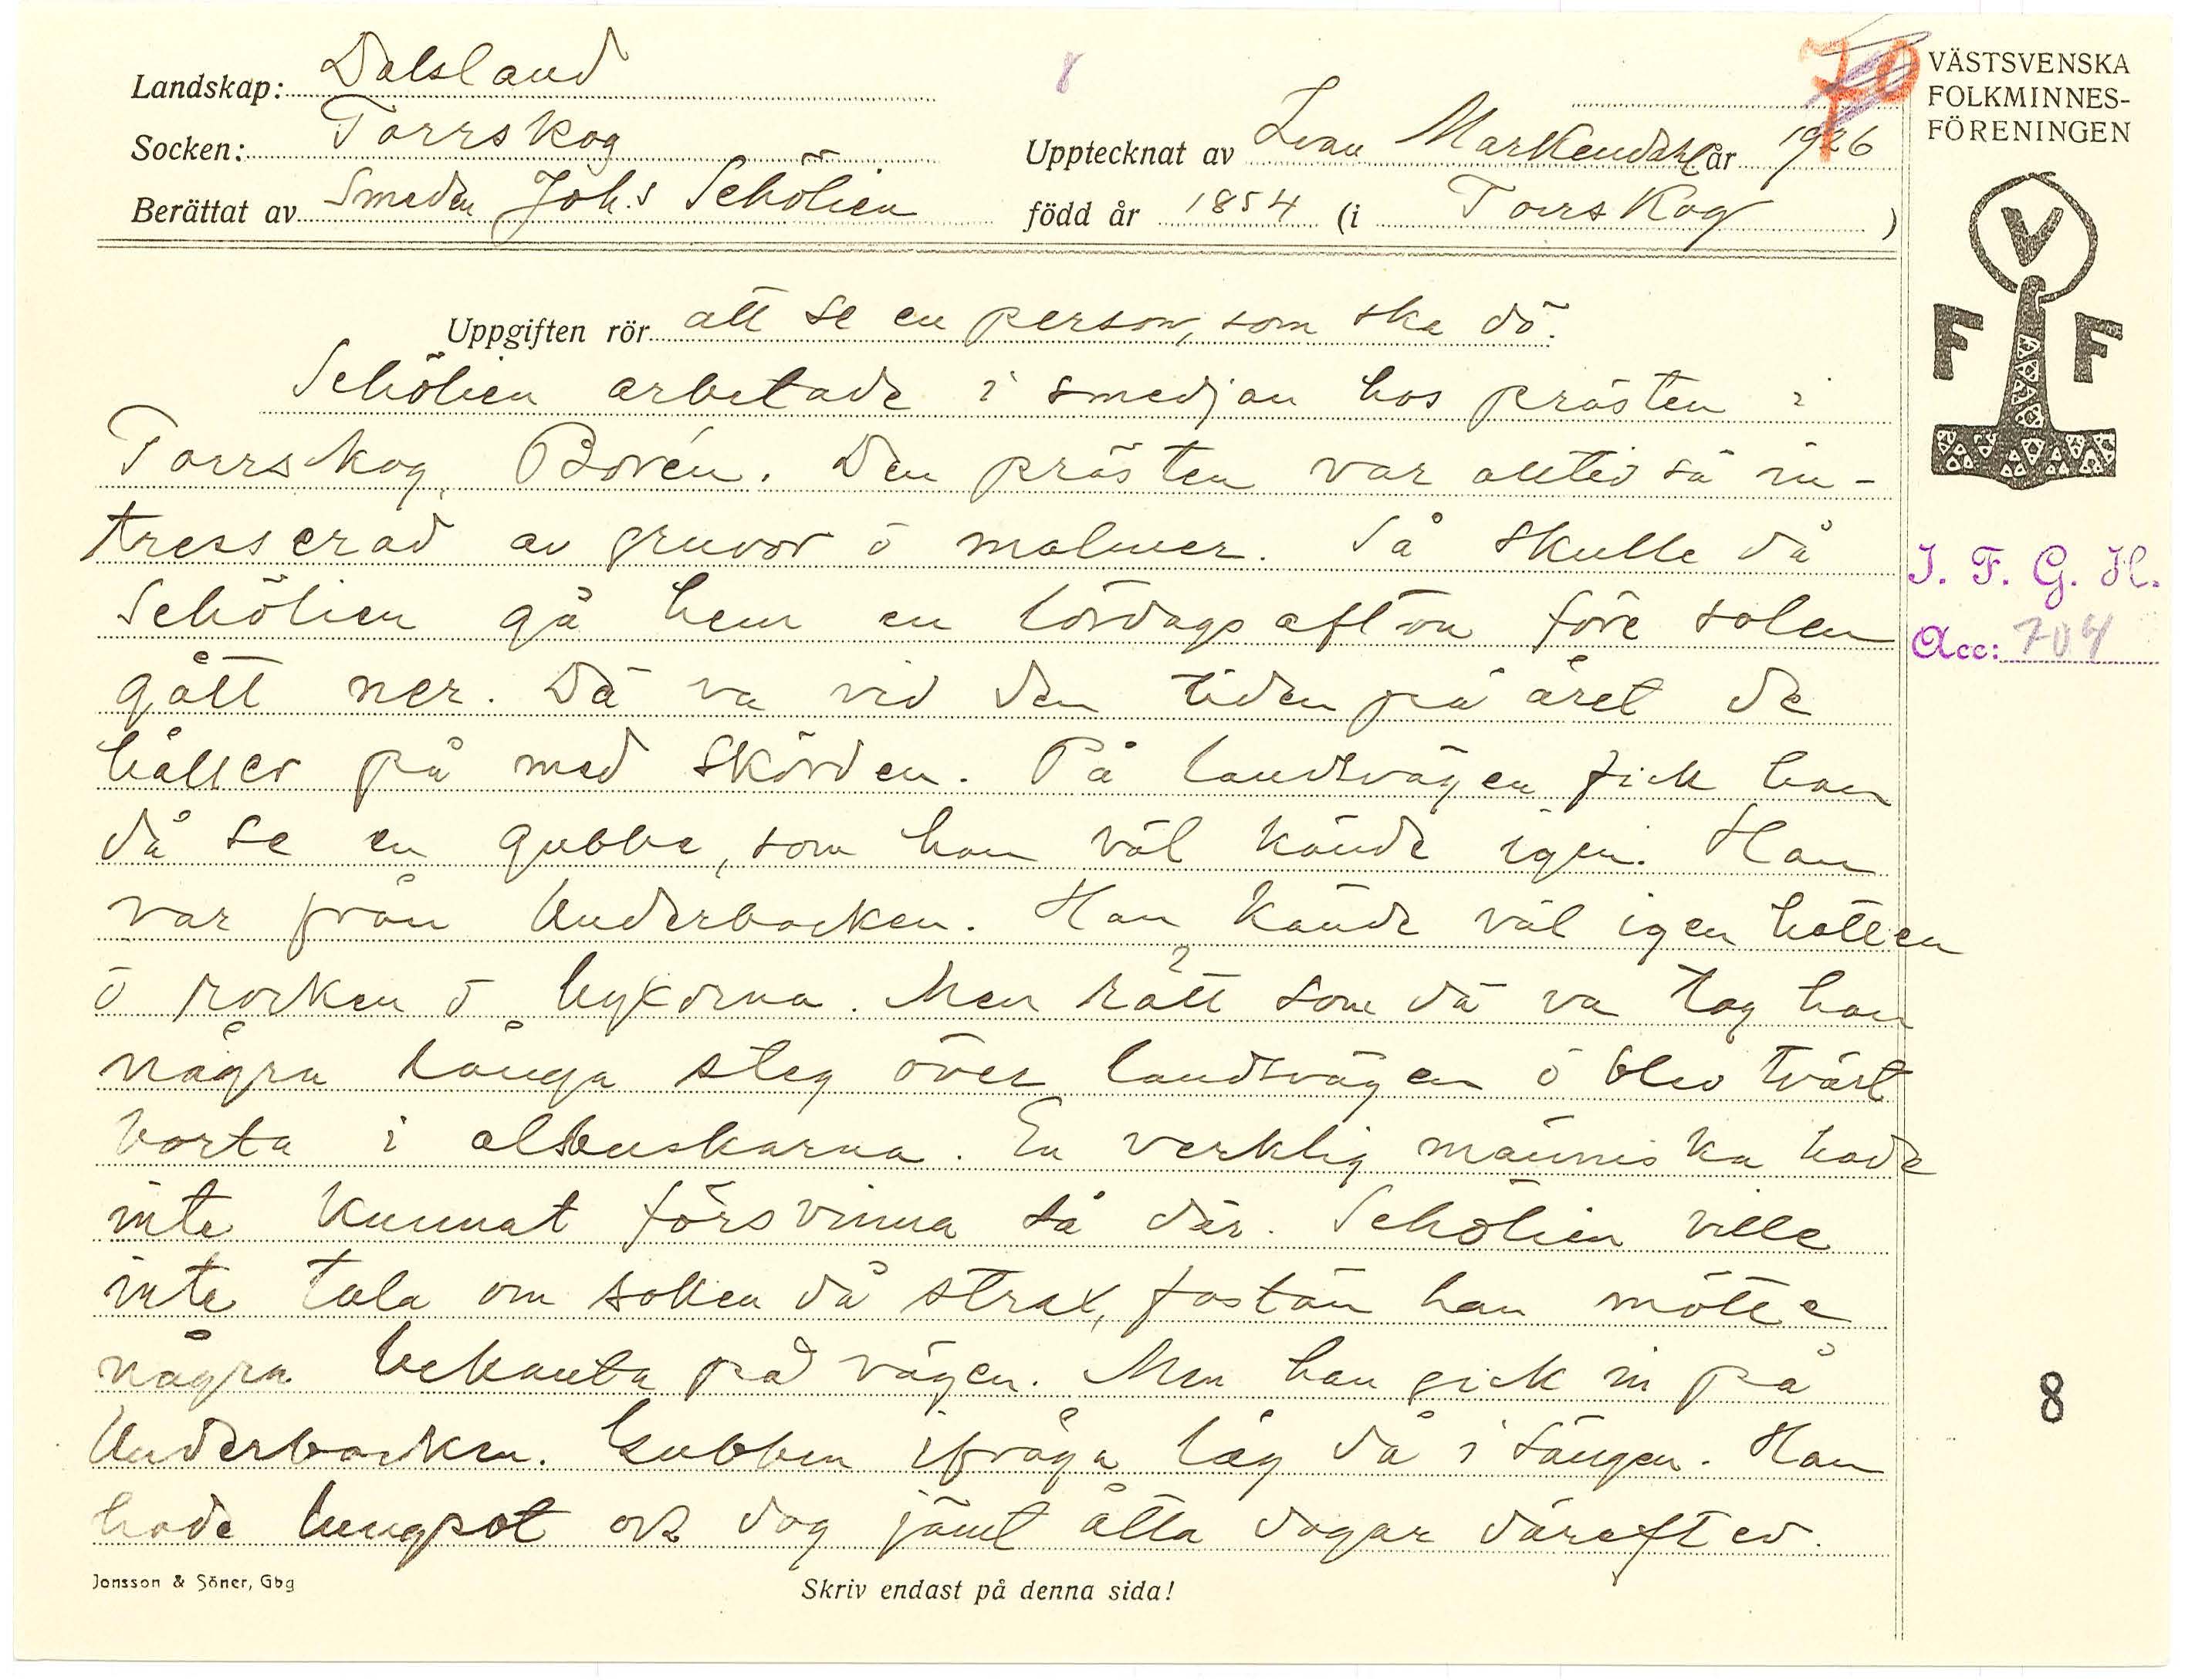 Landskap: Dalsland
Socken: Torrskog
Berättat av Smeden Johs Schölien
8
Upptecknat av Ivan Markendahl år 1926
född år 1854 (i Torrskog )
70
VÄSTSVENSKA
FOLKMINNES-
FÖRENINGEN
V
F F
Uppgiften rör att se en person, som ska dö.
Schölien arbetade i smedjan hos prästen i
Torrskog, Borén. Den prästen var alltid så in-
tresserad av gruvor ö malmer. Så skulle då
Schölien gå hem en lördagsafton före solen
gått ner. Dä va vid den tiden på året de
håller på med skörden. På landsvägen fick han
då se en gubbe, som han väl kände igen. Han
var från Underbacken. Han kände väl igen hatten
ö rocken ö byxorna. Men rätt som dä va tog han
några långa steg över landsvägen ö blev tvärt
borta i albuskarna. En verklig människa hade
inte kunnat försvinna så där. Schölien ville
inte tala om saken då strax, fastän han mötte
några bekanta på vägen. Men han gick in på
Underbacken. Gubben ifråga låg då i sängen. Han
hade lungsot ock dog jämt åtta dagar därefter.
I. F. G. H.
Acc: 704
8
Jonsson & Söner, Gbg
Skriv endast på denna sida!